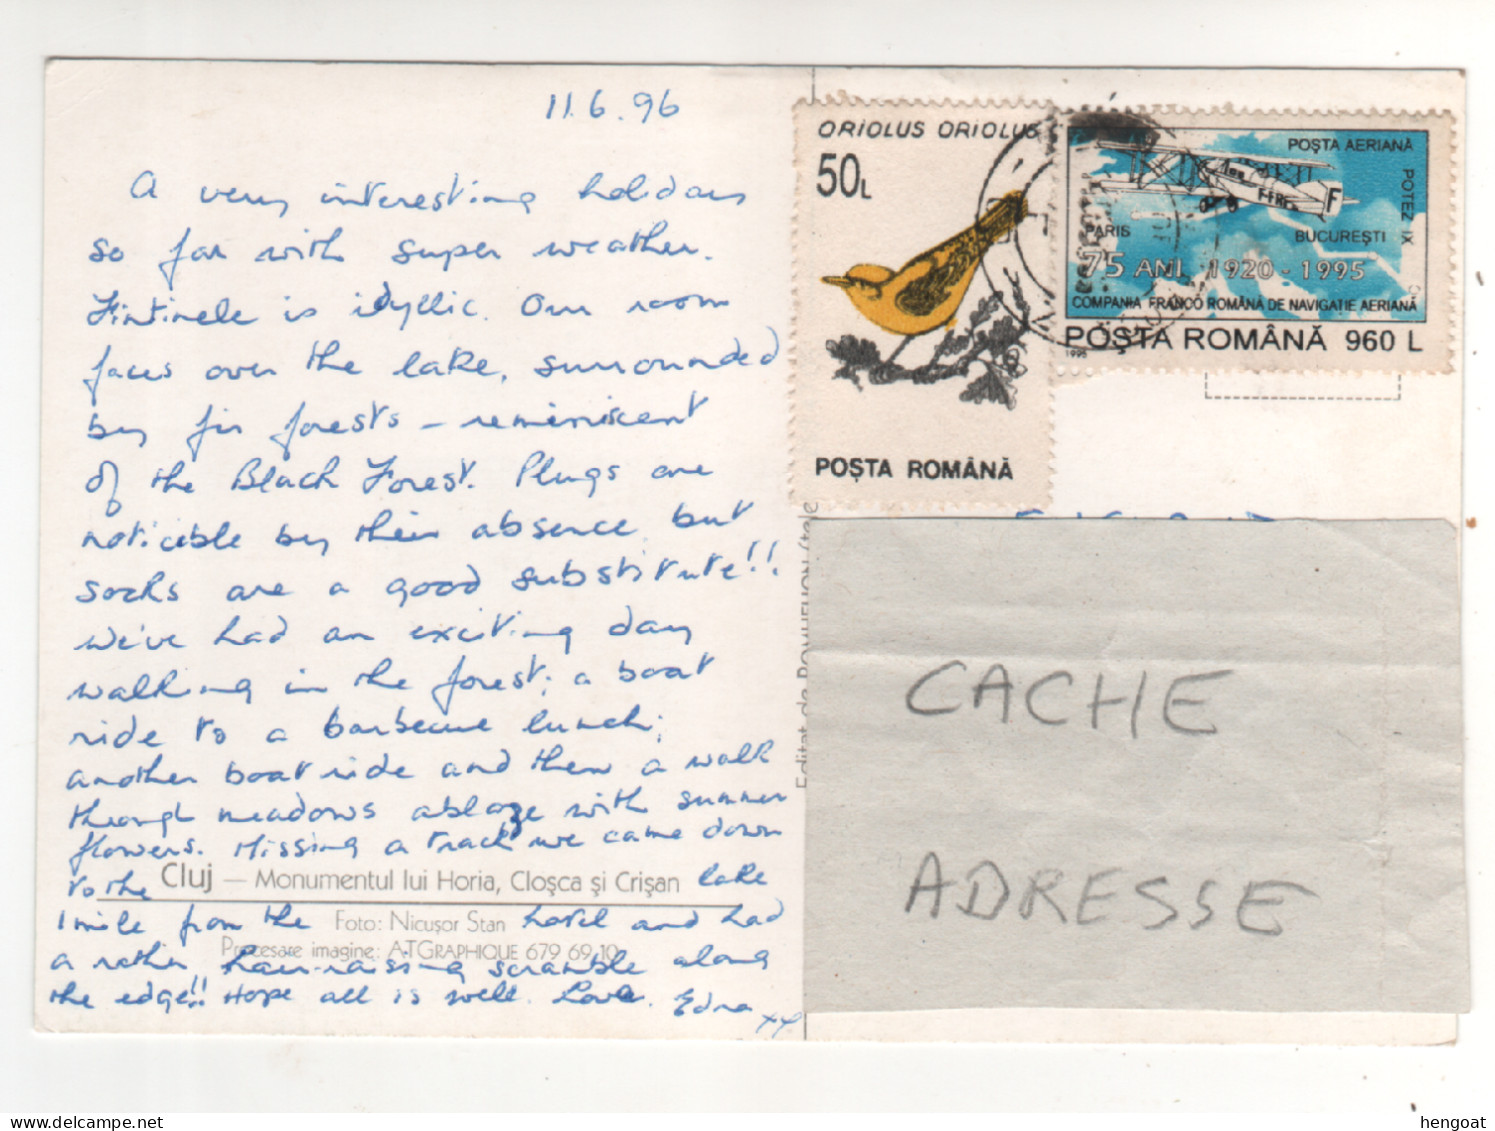 11.6.96
A very interesting holiday
so far with super weather.
Fintinele is idyllic. Our room
faces over the lake, surrounded
by fir forests – reminiscent
of the Black Forest. Plugs are
noticible by their absence but
socks are a good substitute!!
We've had an exciting day
walking in the forest; a boat
ride to a barbecue lunch;
another boat ride and then a walk
through meadows ablaze with summer
flowers. Missing a track we came down
to the lake
1 mile from the hotel and had
a rather hair-raising scramble along
the edge!! Hope all is well. Love. Edna xx
Cluj – Monumentul lui Horia, Cloşca şi Crişan
Foto: Nicuşor Stan
Procesare imagine: ATGRAPHIQUE 679 69 10
ORIOLUS ORIOLUS
50L
POŞTA ROMÂNĂ
POŞTA AERIANĂ
POTEZ IX
F
PARIS
BUCUREŞTI
75 ANI 1920 - 1995
COMPANIA FRANCO ROMÂNĂ DE NAVIGAŢIE AERIANĂ
POŞTA ROMÂNĂ 960 L
1995
Editat de
CACHE
ADRESSE
hengoat